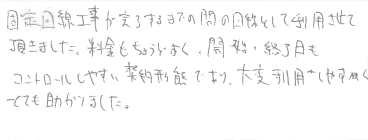 固定回線工事が完了するまでの間の回線として利用させて
頂きました。料金もちょうどよく、開始・終了日も
コントロールしやすい契約形態であり、大変利用しやすく
とても助かりました。